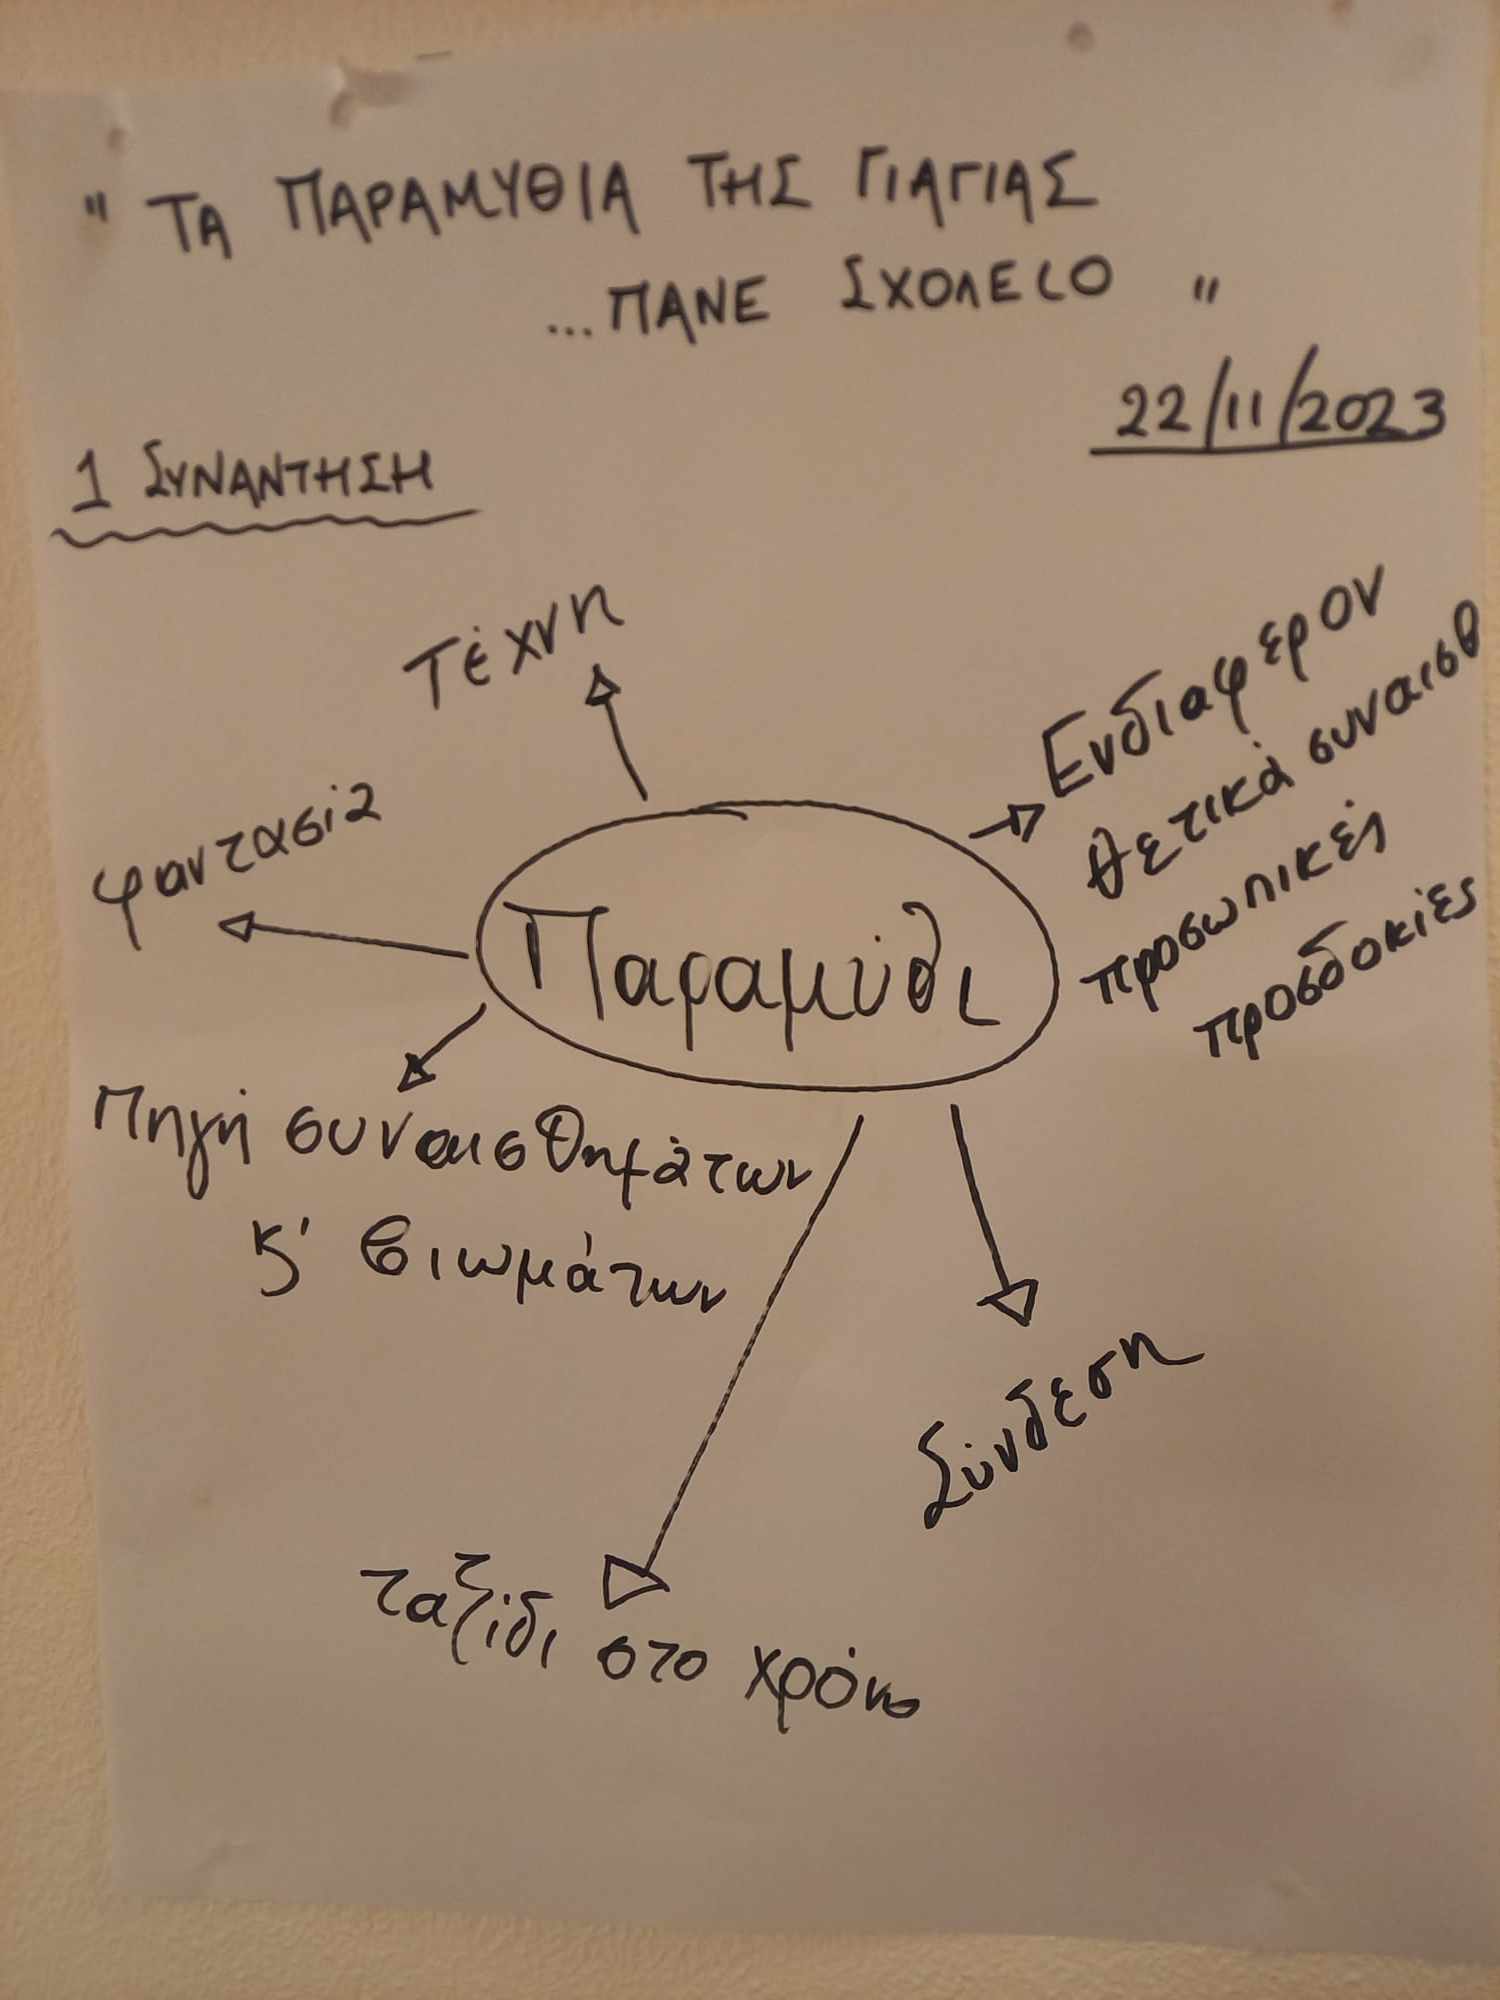 " ΤΑ ΠΑΡΑΜΥΘΙΑ ΤΗΣ ΓΙΑΓΙΑΣ
...ΠΑΝΕ ΣΧΟΛΕΙΟ "
22/11/2023
1 ΣΥΝΑΝΤΗΣΗ
Τέχνη
Ενδιαφερον
θετικά συναισθ
προσωπικές
προσδοκίες
φαντασία
Παραμύθι
Πηγή συναισθημάτων
κ' βιωμάτων
Σύνδεση
ταξίδι στο χρόνο